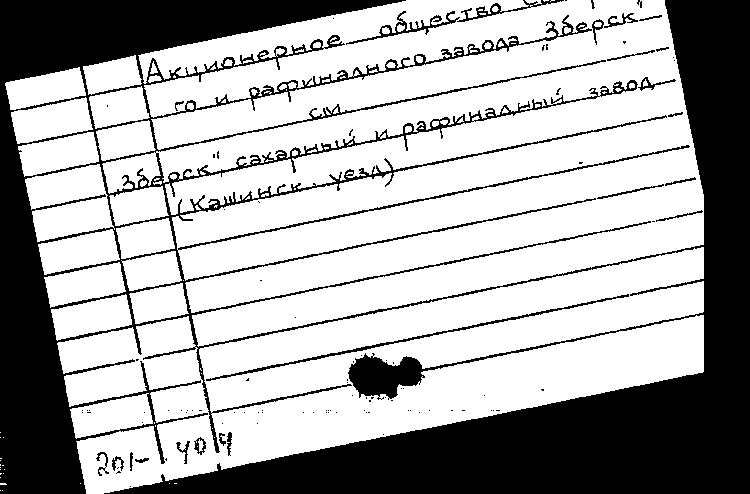 Акционерное общество
го и рафинадного завода „Зберск"
см.
„Зберск", сахарный и рафинадный завод
(Кашинск. уезд)
201- 404